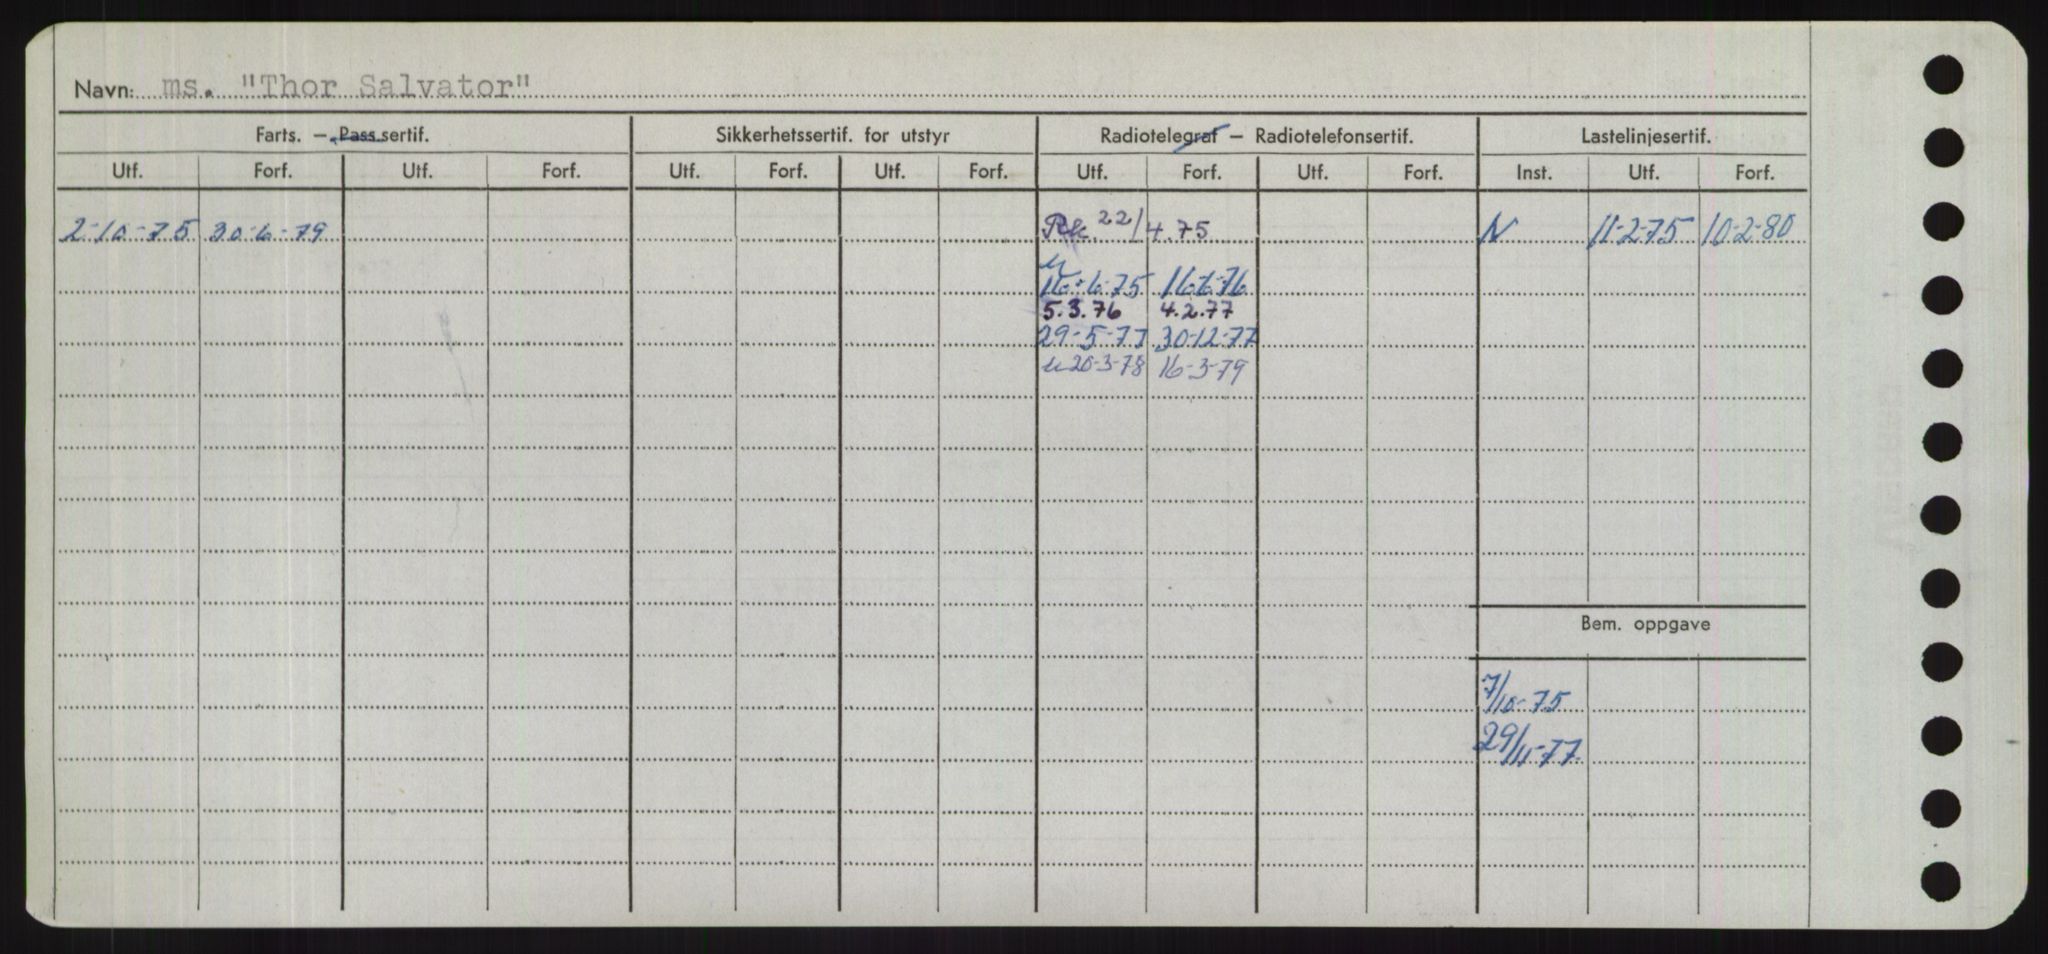 Navn: ms. "Thor Salvator"
Farts. — Pass.sertif. Sikkerhetssertif. for utstyr Radiotelegraf — Radiotelefonsertif. Lastelinjesertif.
Utf. Forf. Utf. Forf. Utf. Forf. Utf. Forf. Utf. Forf. Utf. Forf. Inst. Utf. Forf.
2-10-75 30-6-79 22/4.75 N 11-2-75 10-2-80
16-6-75 16-6-76
5.3.76 4.2.77
29-5-77 30-12-77
20-3-78 16-3-79
Bem. oppgave
7/10-75
29/11-77